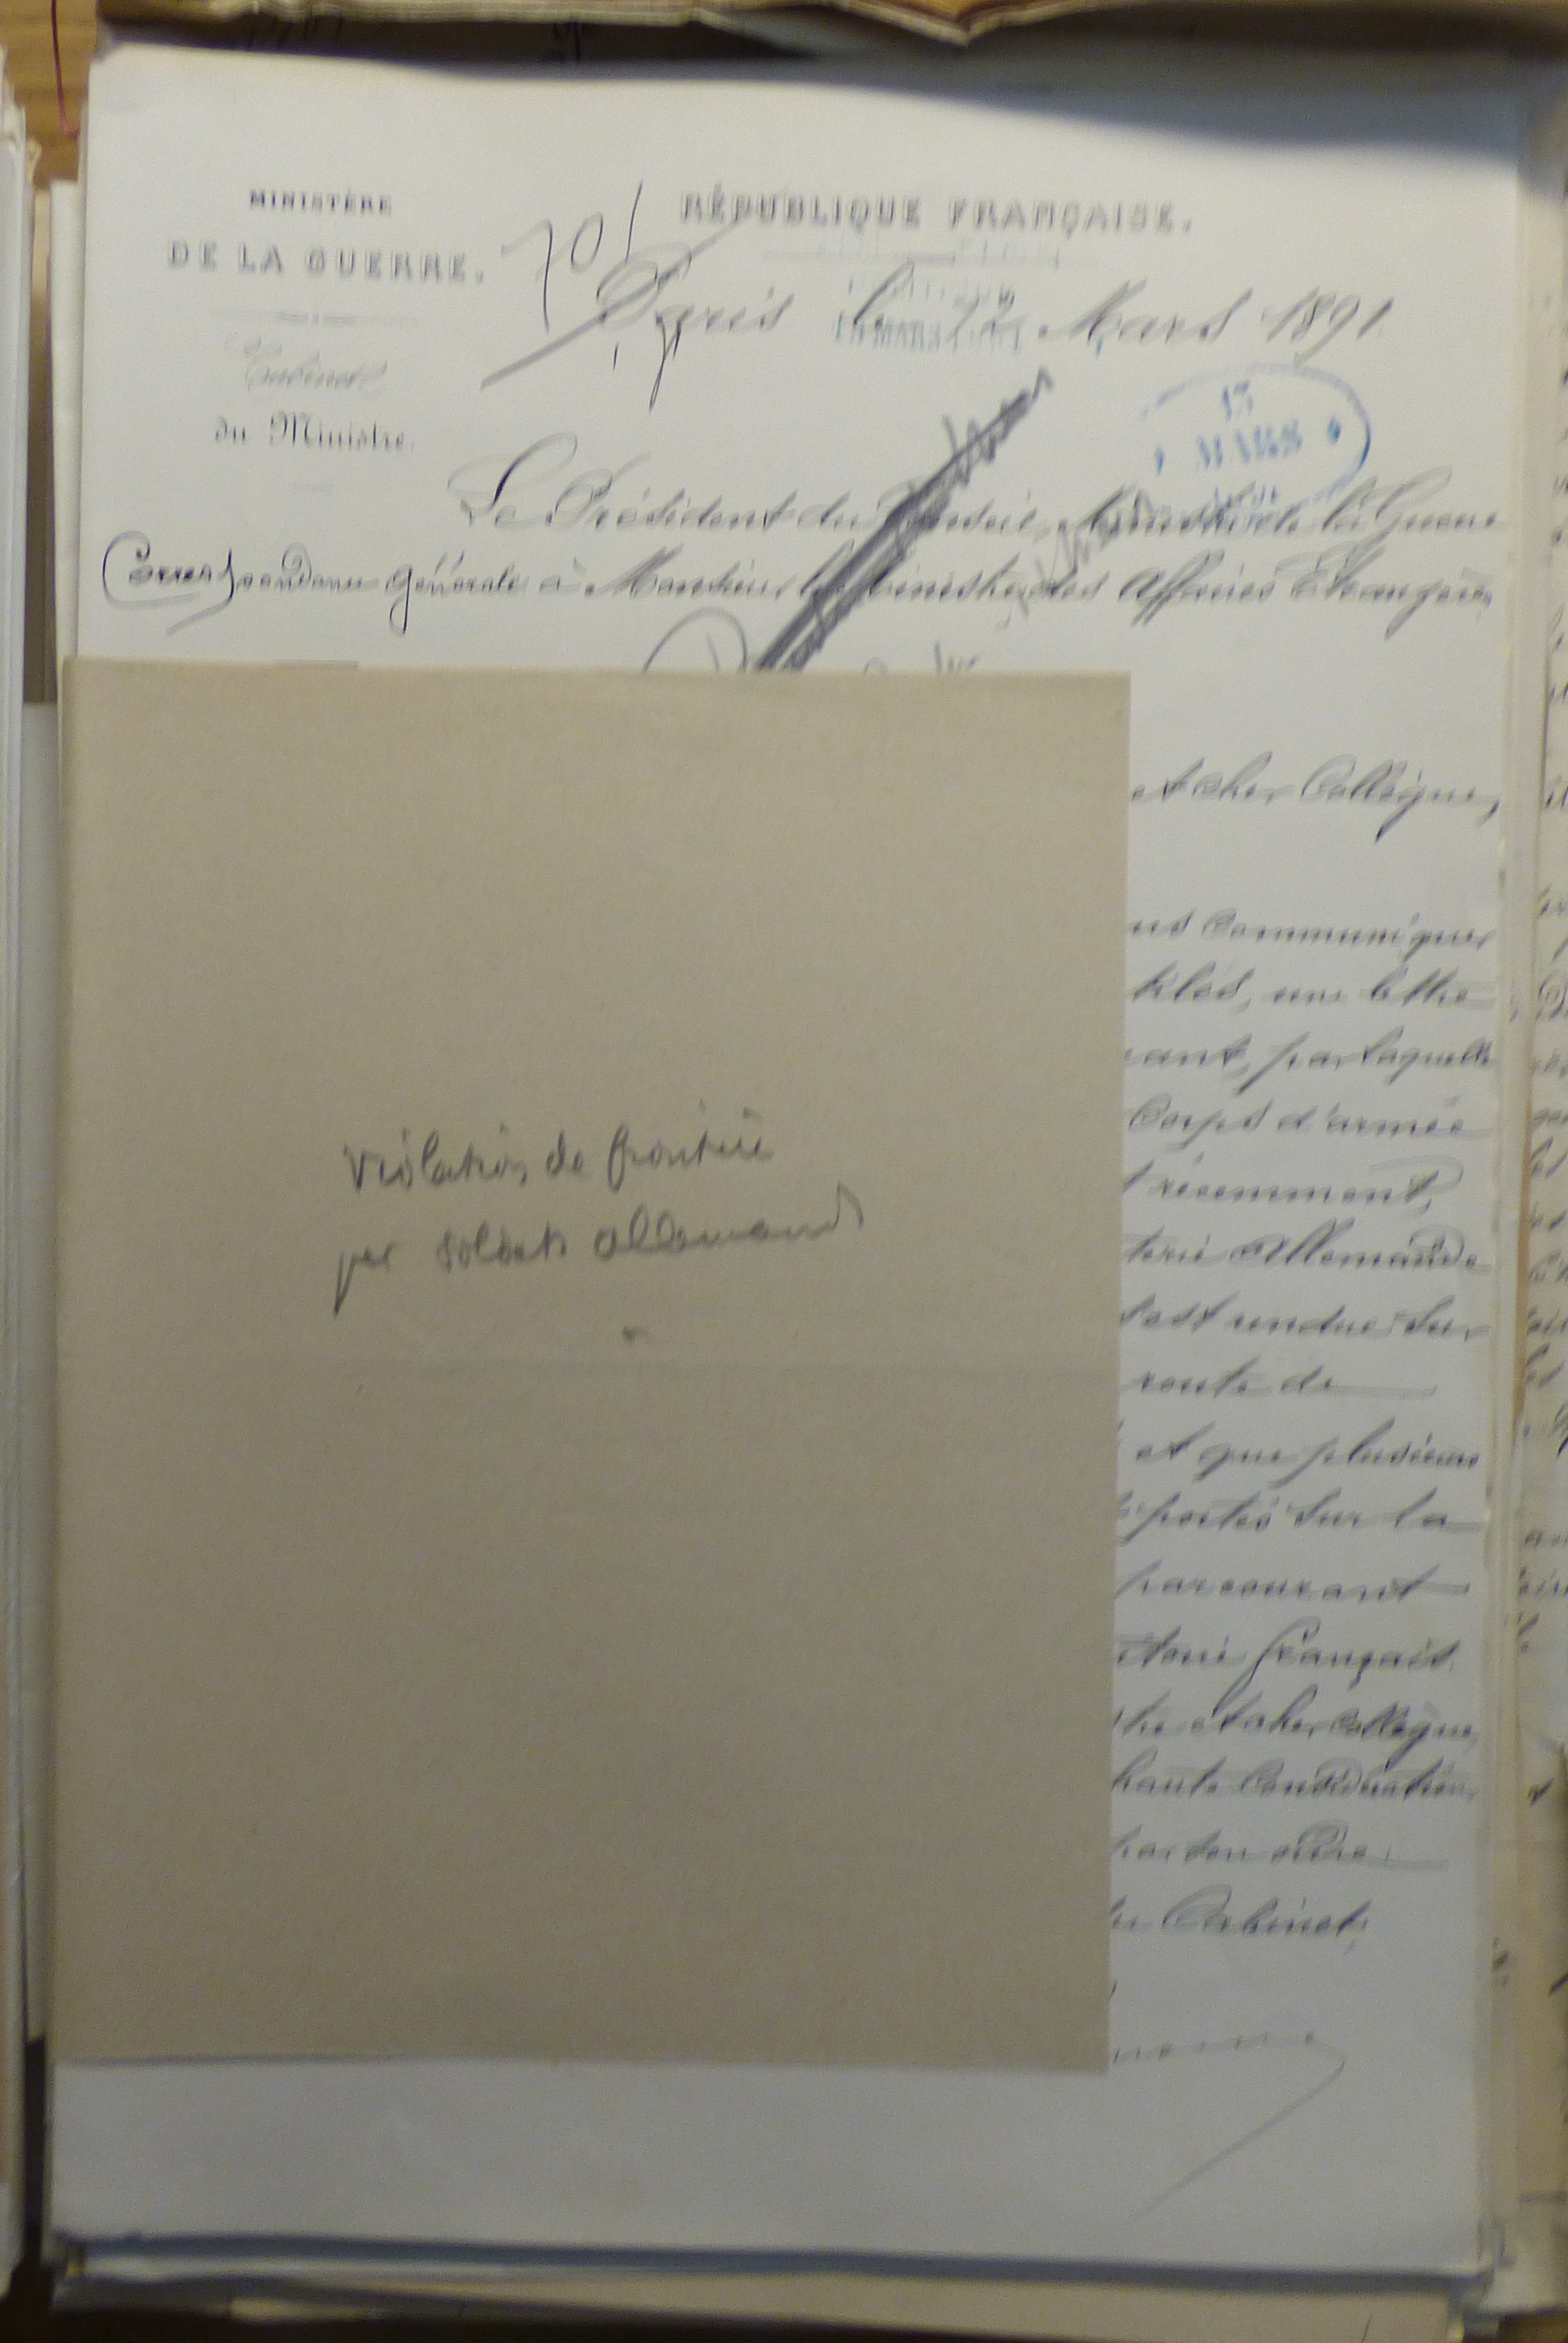 MINISTÈRE
DE LA GUERRE.
RÉPUBLIQUE FRANÇAISE.
70
Paris le 12 Mars 1891
Cabinet
du Ministre.
13
MARS
Le Président du Conseil, Ministre de la Guerre
Correspondance générale à Monsieur le Ministre des Affaires Étrangères
et cher Collègue,
us communiquer
une lettre
ant, par laquelle
Corps d'armée
récemment,
terie Allemande
s'est rendue sur
route de
et que plusieurs
portés sur la
parcourant
itoire français.
tre et cher Collègue,
haute Considération
par son ordre
du Cabinet,
Violation de frontière
par soldats allemands